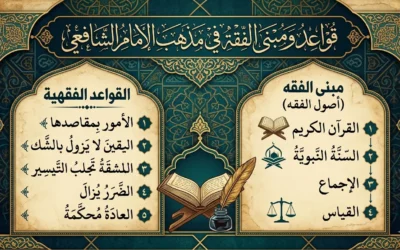 قَوَاعِدُ وَمُبْنَى الفِقْهِ فِي مَذْهَبِ الإِمَامِ الشَّافِعِي
مبنى الفقه
(أصول الفقه)
١ القرآن الكريم
٢ السُّنَّةُ النَّبويَّةُ
٣ الإجماع
٤ القياس
القواعد الفقهية
١ الأمور بِمقاصدها
٢ اليقينَ لا يَزولُ بالشَّك
٣ اللشقةُ تَجلبُ التَّيسِير
٤ الضَّرَرُ يُزالَ
٥ العادَةُ مُحكَّمَةُ